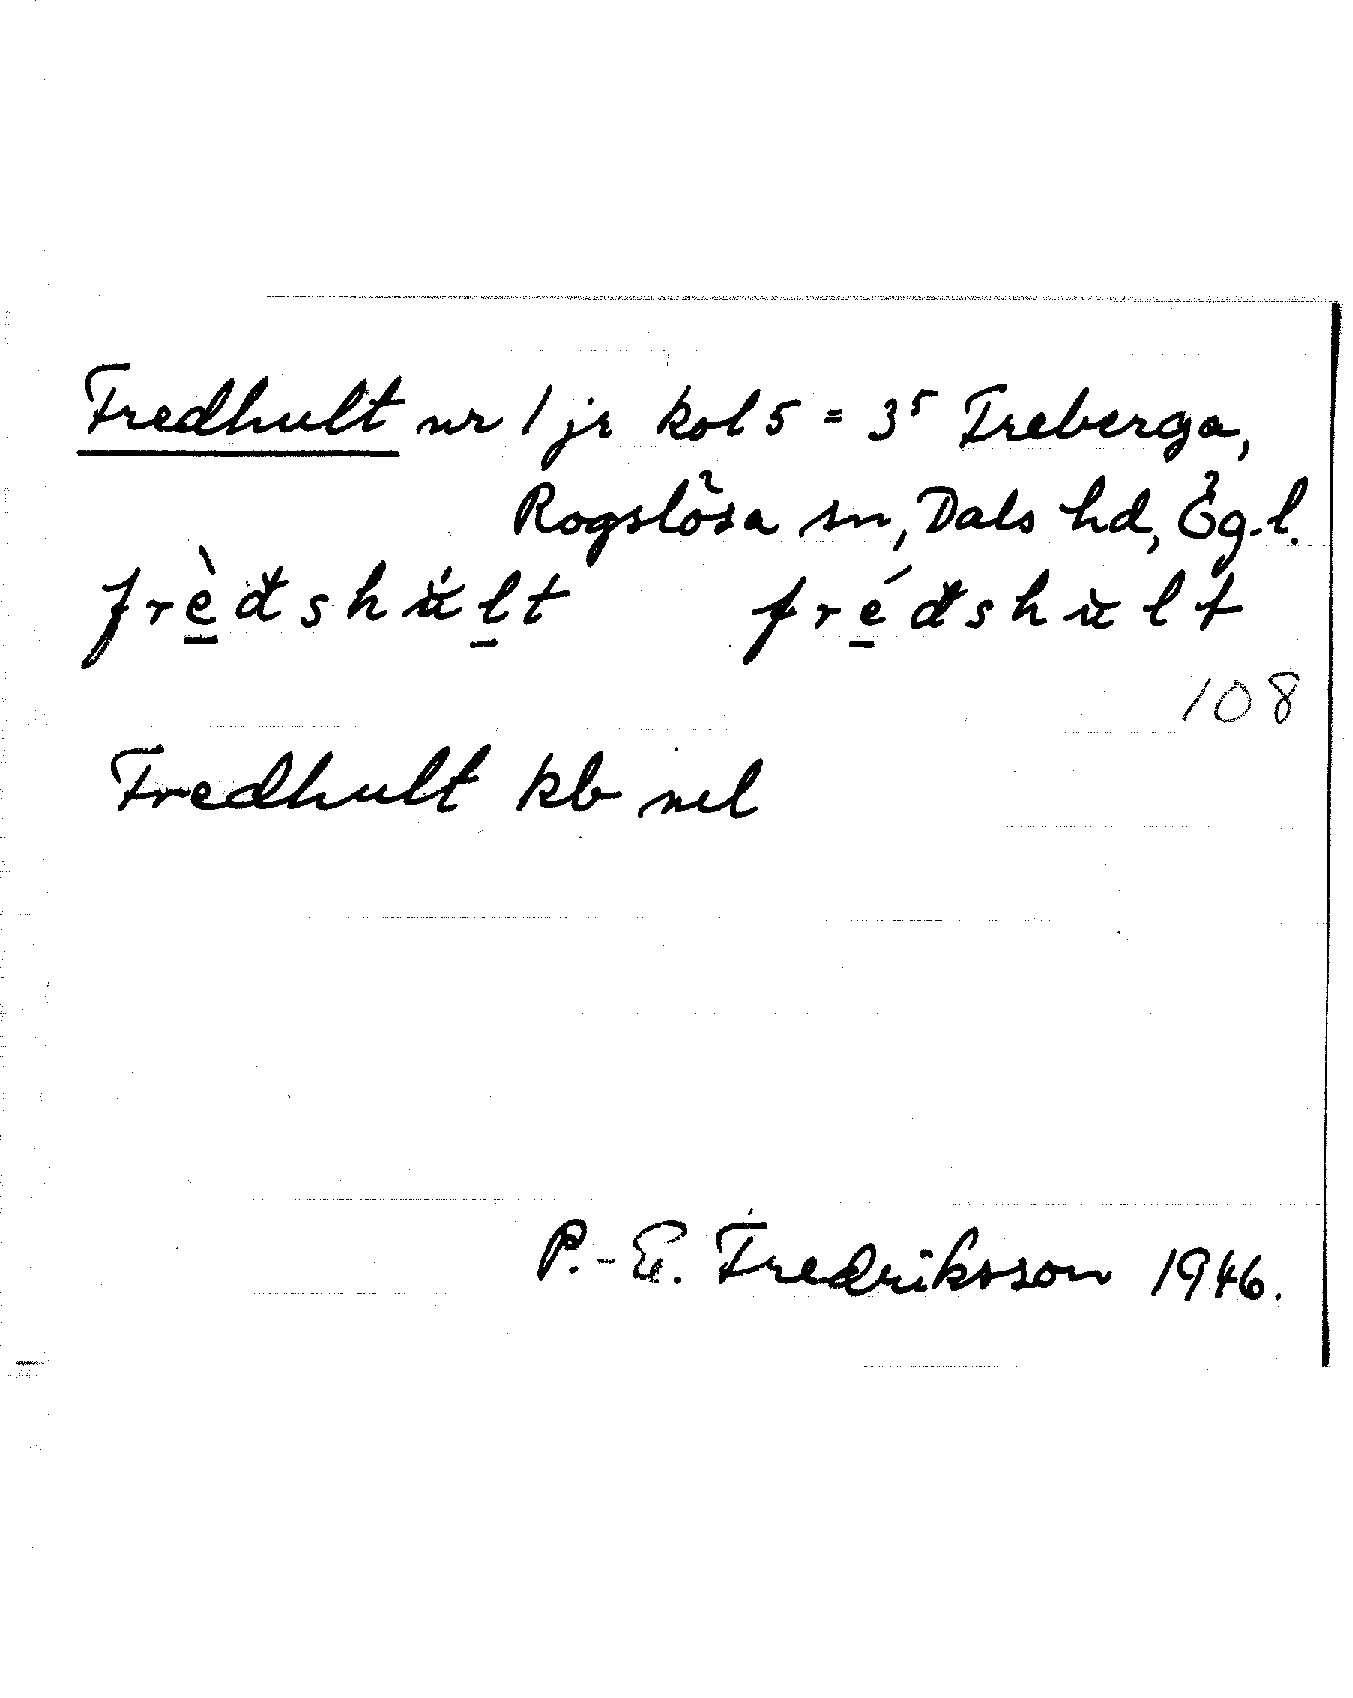 Fredhult nr 1 jr kol 5 = 3⁵ Freberga,
Rogslösa sn, Dals hd, Ög.l.
frèdshúlt frédshùlt
108
Fredhult kb nel
P.-E. Fredriksson 1946.